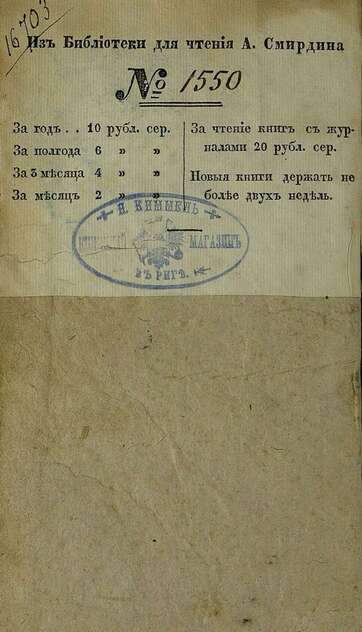 16703
Изъ Библіотеки для чтенія А. Смирдина
№ 1550
За годъ . . 10 рубл. сер.
За полгода 6 » »
За 3 мѣсяца 4 » »
За мѣсяцъ 2 » »
За чтеніе книгъ съ жур-
налами 20 рубл. сер.
Новыя книги держать не
болѣе двухъ недѣль.
Н. КИММЕЛЬ
МАГАЗИНЪ
ВЪ РИГѢ